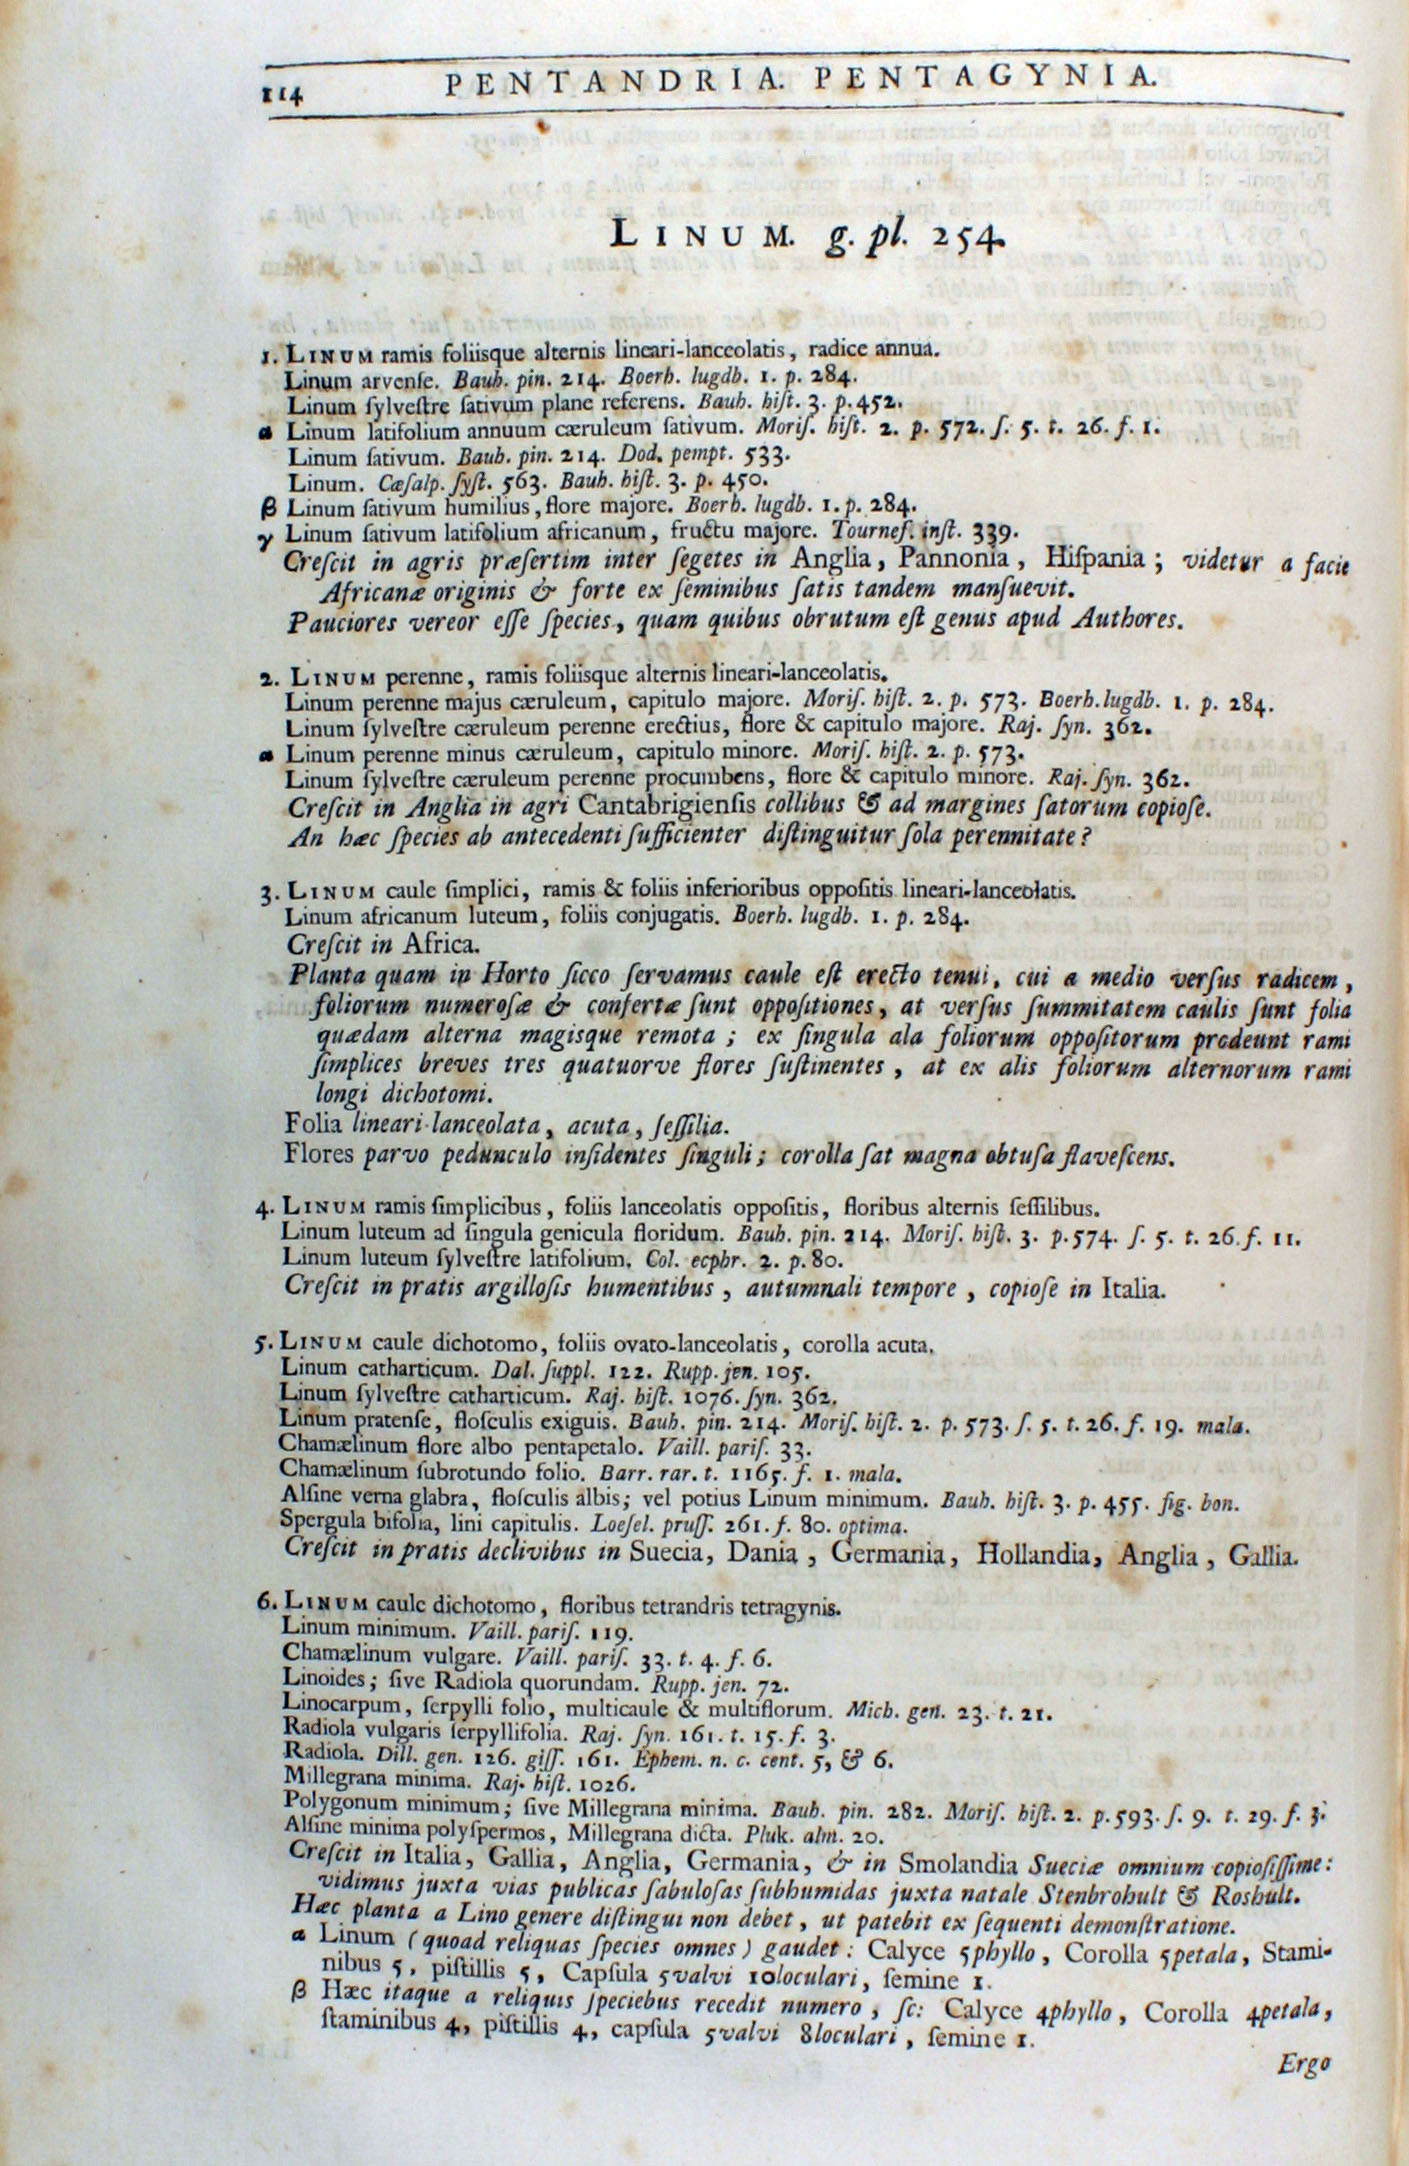 114 PENTANDRIA. PENTAGYNIA.
LINUM. g. pl. 254.
1. LINUM ramis foliisque alternis lineari-lanceolatis, radice annua.
Linum arvenſe. Bauh. pin. 214. Boerh. lugdb. 1. p. 284.
Linum ſylveſtre ſativum plane referens. Bauh. hiſt. 3. p. 452.
α Linum latifolium annuum cæruleum ſativum. Moriſ. hiſt. 2. p. 572. ſ. 5. t. 26. f. 1.
Linum ſativum. Bauh. pin. 214. Dod. pempt. 533.
Linum. Cæſalp. ſyſt. 563. Bauh. hiſt. 3. p. 450.
β Linum ſativum humilius, flore majore. Boerh. lugdb. 1. p. 284.
γ Linum ſativum latifolium africanum, fructu majore. Tournef. inſt. 339.
Creſcit in agris præſertim inter ſegetes in Anglia, Pannonia, Hiſpania; videtur a facie
Africanæ originis & forte ex ſeminibus ſatis tandem manſuevit.
Pauciores vereor eſſe ſpecies, quam quibus obrutum eſt genus apud Authores.
2. LINUM perenne, ramis foliisque alternis lineari-lanceolatis.
Linum perenne majus cæruleum, capitulo majore. Moriſ. hiſt. 2. p. 573. Boerh. lugdb. 1. p. 284.
Linum ſylveſtre cæruleum perenne erectius, flore & capitulo majore. Raj. ſyn. 362.
α Linum perenne minus cæruleum, capitulo minore. Moriſ. hiſt. 2. p. 573.
Linum ſylveſtre cæruleum perenne procumbens, flore & capitulo minore. Raj. ſyn. 362.
Creſcit in Anglia in agri Cantabrigienſis collibus & ad margines ſatorum copioſe.
An hæc ſpecies ab antecedenti ſufficienter diſtinguitur ſola perennitate?
3. LINUM caule ſimplici, ramis & foliis inferioribus oppoſitis lineari-lanceolatis.
Linum africanum luteum, foliis conjugatis. Boerh. lugdb. 1. p. 284.
Creſcit in Africa.
Planta quam in Horto ſicco ſervamus caule eſt erecto tenui, cui a medio verſus radicem,
foliorum numeroſæ & confertæ ſunt oppoſitiones, at verſus ſummitatem caulis ſunt folia
quædam alterna magisque remota; ex ſingula ala foliorum oppoſitorum prodeunt rami
ſimplices breves tres quatuorve flores ſuſtinentes, at ex alis foliorum alternorum rami
longi dichotomi.
Folia lineari-lanceolata, acuta, ſeſſilia.
Flores parvo pedunculo inſidentes ſinguli; corolla ſat magna obtuſa flaveſcens.
4. LINUM ramis ſimplicibus, foliis lanceolatis oppoſitis, floribus alternis ſeſſilibus.
Linum luteum ad ſingula genicula floridum. Bauh. pin. 214. Moriſ. hiſt. 3. p. 574. ſ. 5. t. 26. f. 11.
Linum luteum ſylveſtre latifolium. Col. ecphr. 2. p. 80.
Creſcit in pratis argilloſis humentibus, autumnali tempore, copioſe in Italia.
5. LINUM caule dichotomo, foliis ovato-lanceolatis, corolla acuta.
Linum catharticum. Dal. ſuppl. 122. Rupp. jen. 105.
Linum ſylveſtre catharticum. Raj. hiſt. 1076. ſyn. 362.
Linum pratenſe, floſculis exiguis. Bauh. pin. 214. Moriſ. hiſt. 2. p. 573. ſ. 5. t. 26. f. 19. mala.
Chamælinum flore albo pentapetalo. Vaill. pariſ. 33.
Chamælinum ſubrotundo folio. Barr. rar. t. 1165. f. 1. mala.
Alſine verna glabra, floſculis albis; vel potius Linum minimum. Bauh. hiſt. 3. p. 455. fig. bon.
Spergula bifolia, lini capitulis. Loeſel. pruſſ. 261. f. 80. optima.
Creſcit in pratis declivibus in Suecia, Dania, Germania, Hollandia, Anglia, Gallia.
6. LINUM caule dichotomo, floribus tetrandris tetragynis.
Linum minimum. Vaill. pariſ. 119.
Chamælinum vulgare. Vaill. pariſ. 33. t. 4. f. 6.
Linoides; ſive Radiola quorundam. Rupp. jen. 72.
Linocarpum, ſerpylli folio, multicaule & multiflorum. Mich. gen. 23. t. 21.
Radiola vulgaris ſerpyllifolia. Raj. ſyn. 161. t. 15. f. 3.
Radiola. Dill. gen. 126. giſſ. 161. Ephem. n. c. cent. 5, & 6.
Millegrana minima. Raj. hiſt. 1026.
Polygonum minimum; ſive Millegrana minima. Bauh. pin. 282. Moriſ. hiſt. 2. p. 593. ſ. 9. t. 29. f. 3.
Alſine minima polyſpermos, Millegrana dicta. Pluk. alm. 20.
Creſcit in Italia, Gallia, Anglia, Germania, & in Smolandia Sueciæ omnium copioſiſſime:
vidimus juxta vias publicas ſabuloſas ſubhumidas juxta natale Stenbrohult & Roshult.
Hæc planta a Lino genere diſtingui non debet, ut patebit ex ſequenti demonſtratione.
α Linum (quoad reliquas ſpecies omnes) gaudet: Calyce 5phyllo, Corolla 5petala, Stami-
nibus 5, piſtillis 5, Capſula 5valvi 10loculari, ſemine 1.
β Hæc itaque a reliquis ſpeciebus recedit numero, ſc: Calyce 4phyllo, Corolla 4petala,
ſtaminibus 4, piſtillis 4, capſula 5valvi 8loculari, ſemine 1.
Ergo